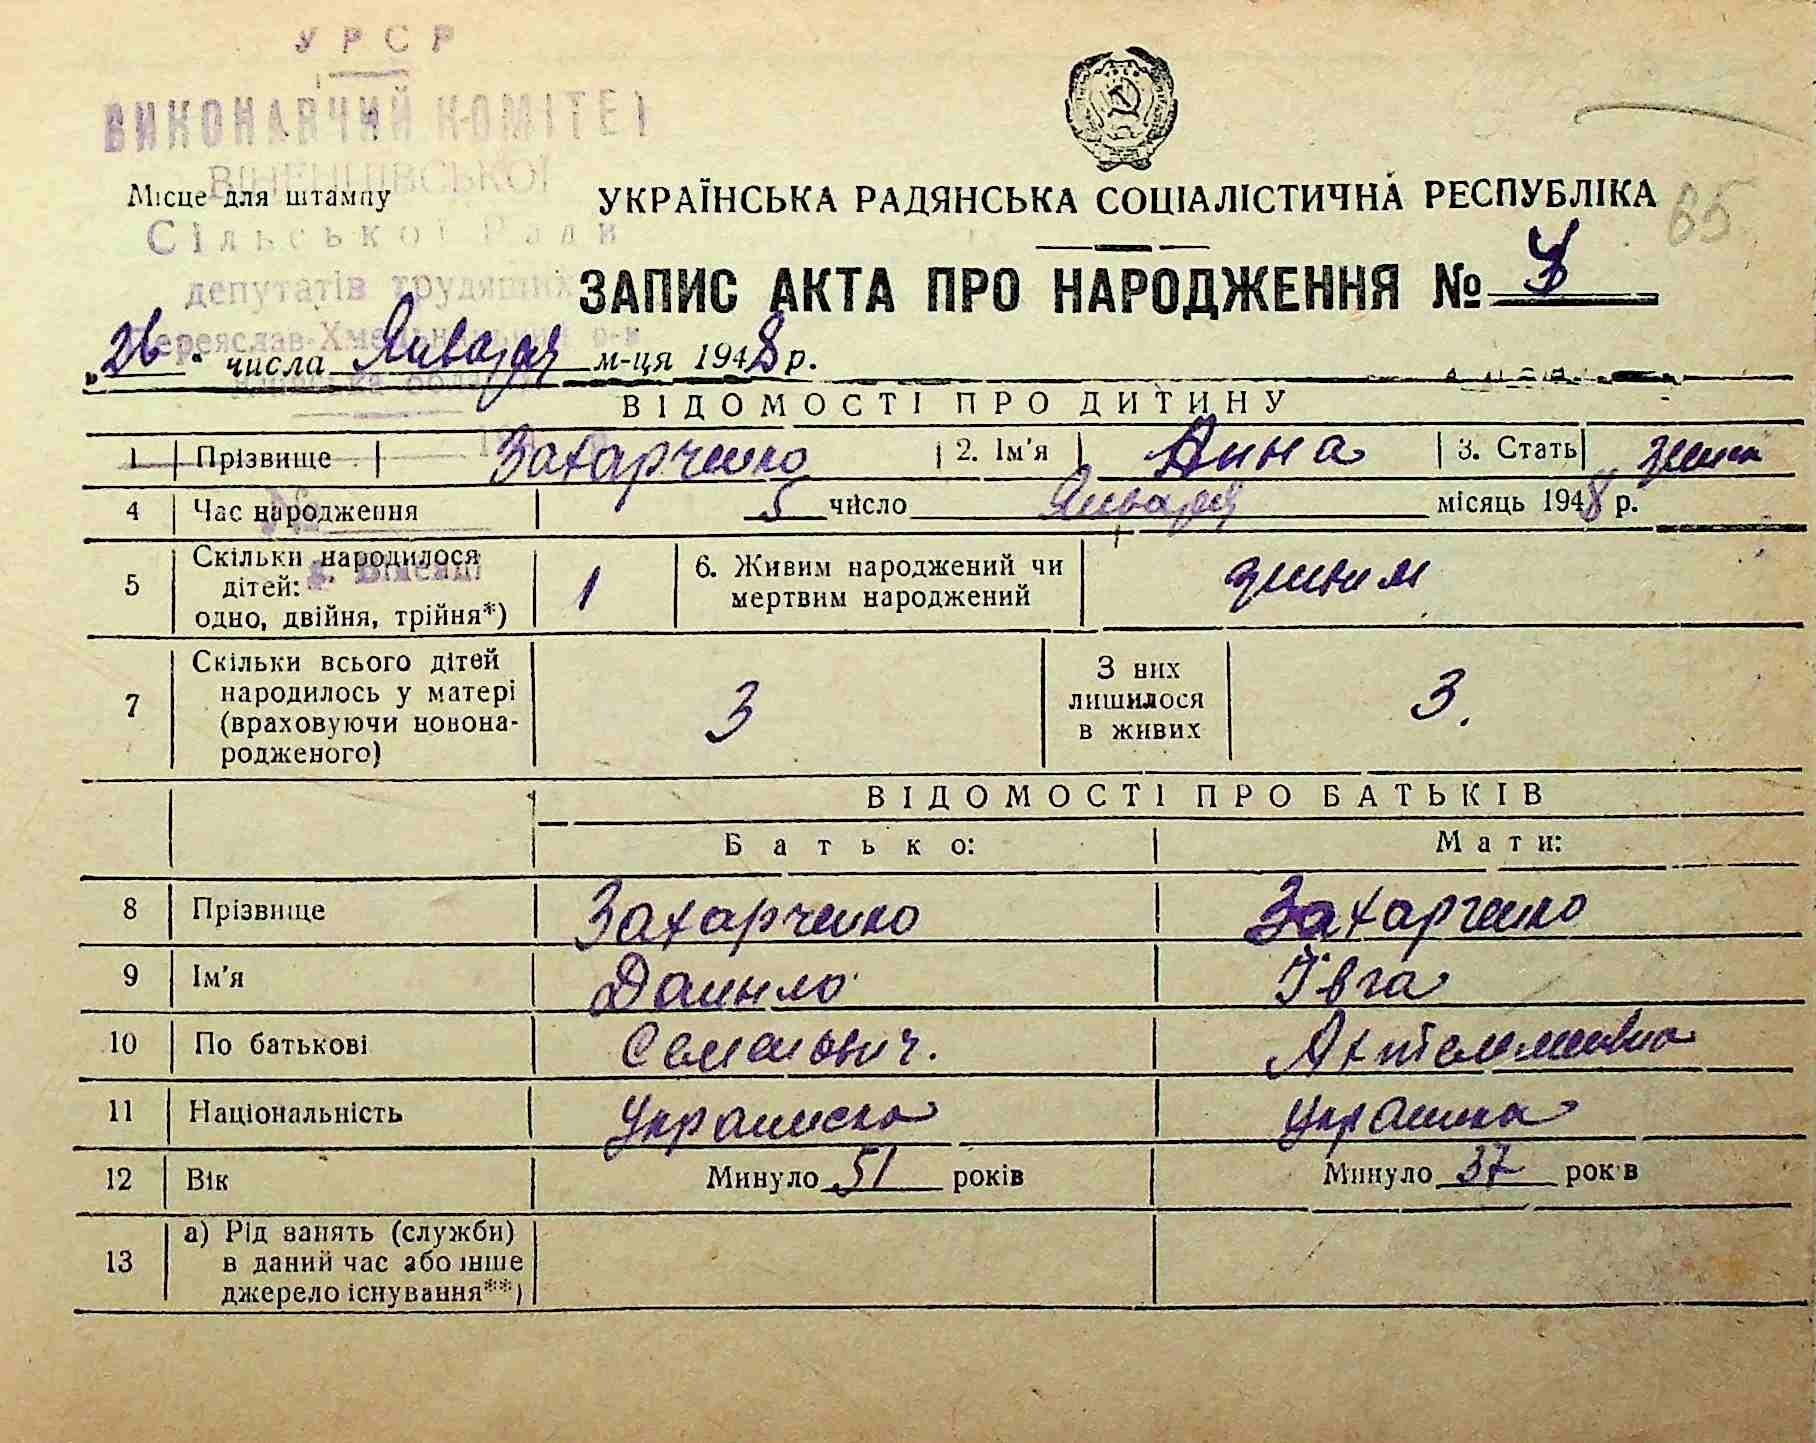 УРСР
ВИКОНАВЧИЙ КОМІТЕТ
Місце для штампу
Сільської Ради
депутатів трудящих
Переяслав-Хмельницький р-н
УКРАЇНСЬКА РАДЯНСЬКА СОЦІАЛІСТИЧНА РЕСПУБЛІКА
65
ЗАПИС АКТА ПРО НАРОДЖЕННЯ №
„26" числа Января м-ця 1948 р.
ВІДОМОСТІ ПРО ДИТИНУ
1 Прізвище Захарченко 2. Ім'я Анна 3. Стать жін
4 Час народження 5 число Января місяць 1948 р.
5 Скільки народилося дітей: одно, двійня, трійня*) 1 6. Живим народжений чи мертвим народжений живим
7 Скільки всього дітей народилось у матері (враховуючи новонародженого) 3 З них лишилося в живих 3.
ВІДОМОСТІ ПРО БАТЬКІВ
Батько: Мати:
8 Прізвище Захарченко Захарченко
9 Ім'я Данило Івга
10 По батькові Семенович.
11 Національність Украинец Украинка
12 Вік Минуло 51 років Минуло 37 років
13 а) Рід занять (служби) в даний час або інше джерело існування**)